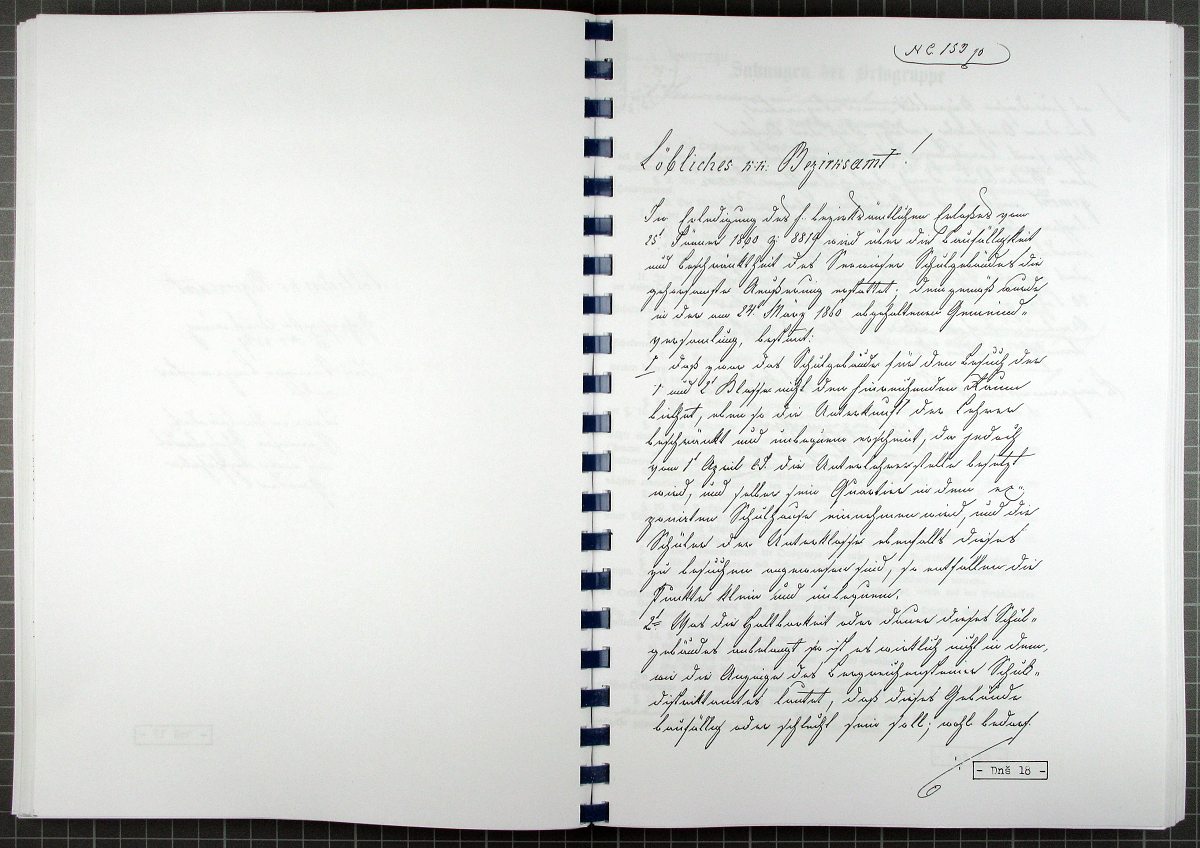 N C. 159/10
Löbliches k. k. Bezirksamt!
In Erledigung des h. bezirksämtlichen Erlaßes vom
25t Jänner 1860 z: 8819 wird über die Baufälligkeit
und Beschränktheit des Seewieser Schulgebäudes die
gehorsamste Aeußerung erstattet: demgemäß wurde
in der am 24t März 1860 abgehaltenen Gemeind=
versamlung, bestimt:
1 daß zwar das Schulgebäude für den Besuch der
1 und 2t Klasse nicht den hinreichenden Raum
biethet, eben so die Unterkunft der Lehrer
beschränkt und unbequem erscheint, da jedoch
vom 1t April die Unterlehrerstelle besetzt
wird, und selber sein Quartier in dem ex=
ponirten Schulhause einnehmen wird, und die
Schüler der Unterklasse ebenfalls dieses
zu besuchen angewiesen sind, so entfallen die
Punkte klein und unbequem.
2t Was die Haltbarkeit oder dauer dieses Schul=
gebäudes anbelangt so ist es wirklich nicht in dem,
wie die Anzeige des Bergreichensteiner Schul=
distriktamtes lautet, daß dieses Gebäude
baufällig oder schlecht sein soll; wohl bedarf
./.
- Dnš 18 -